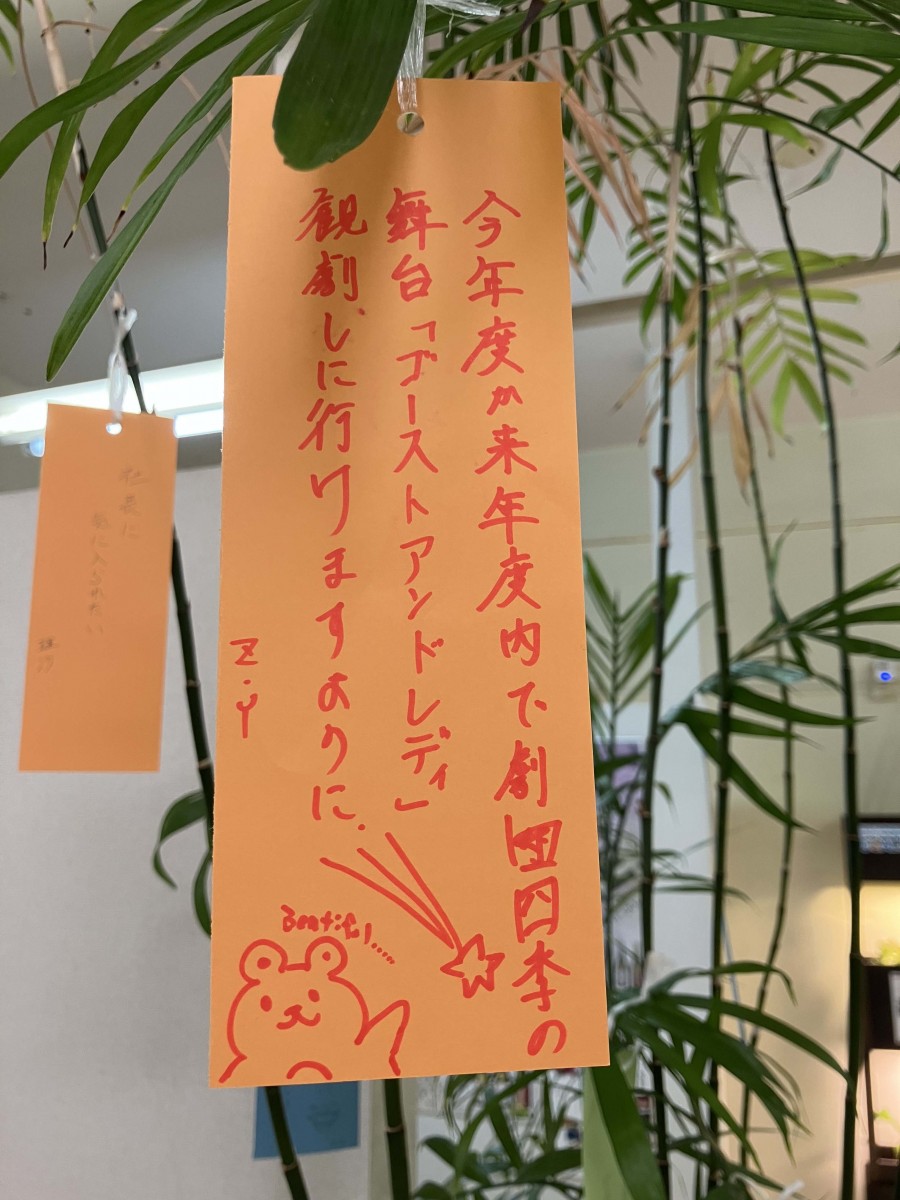 今年度か来年度内で劇団四季の
舞台「ゴーストアンドレディ」
観劇しに行けますように.
Z.Y
Beatiful.....
社長に
気に入られたい